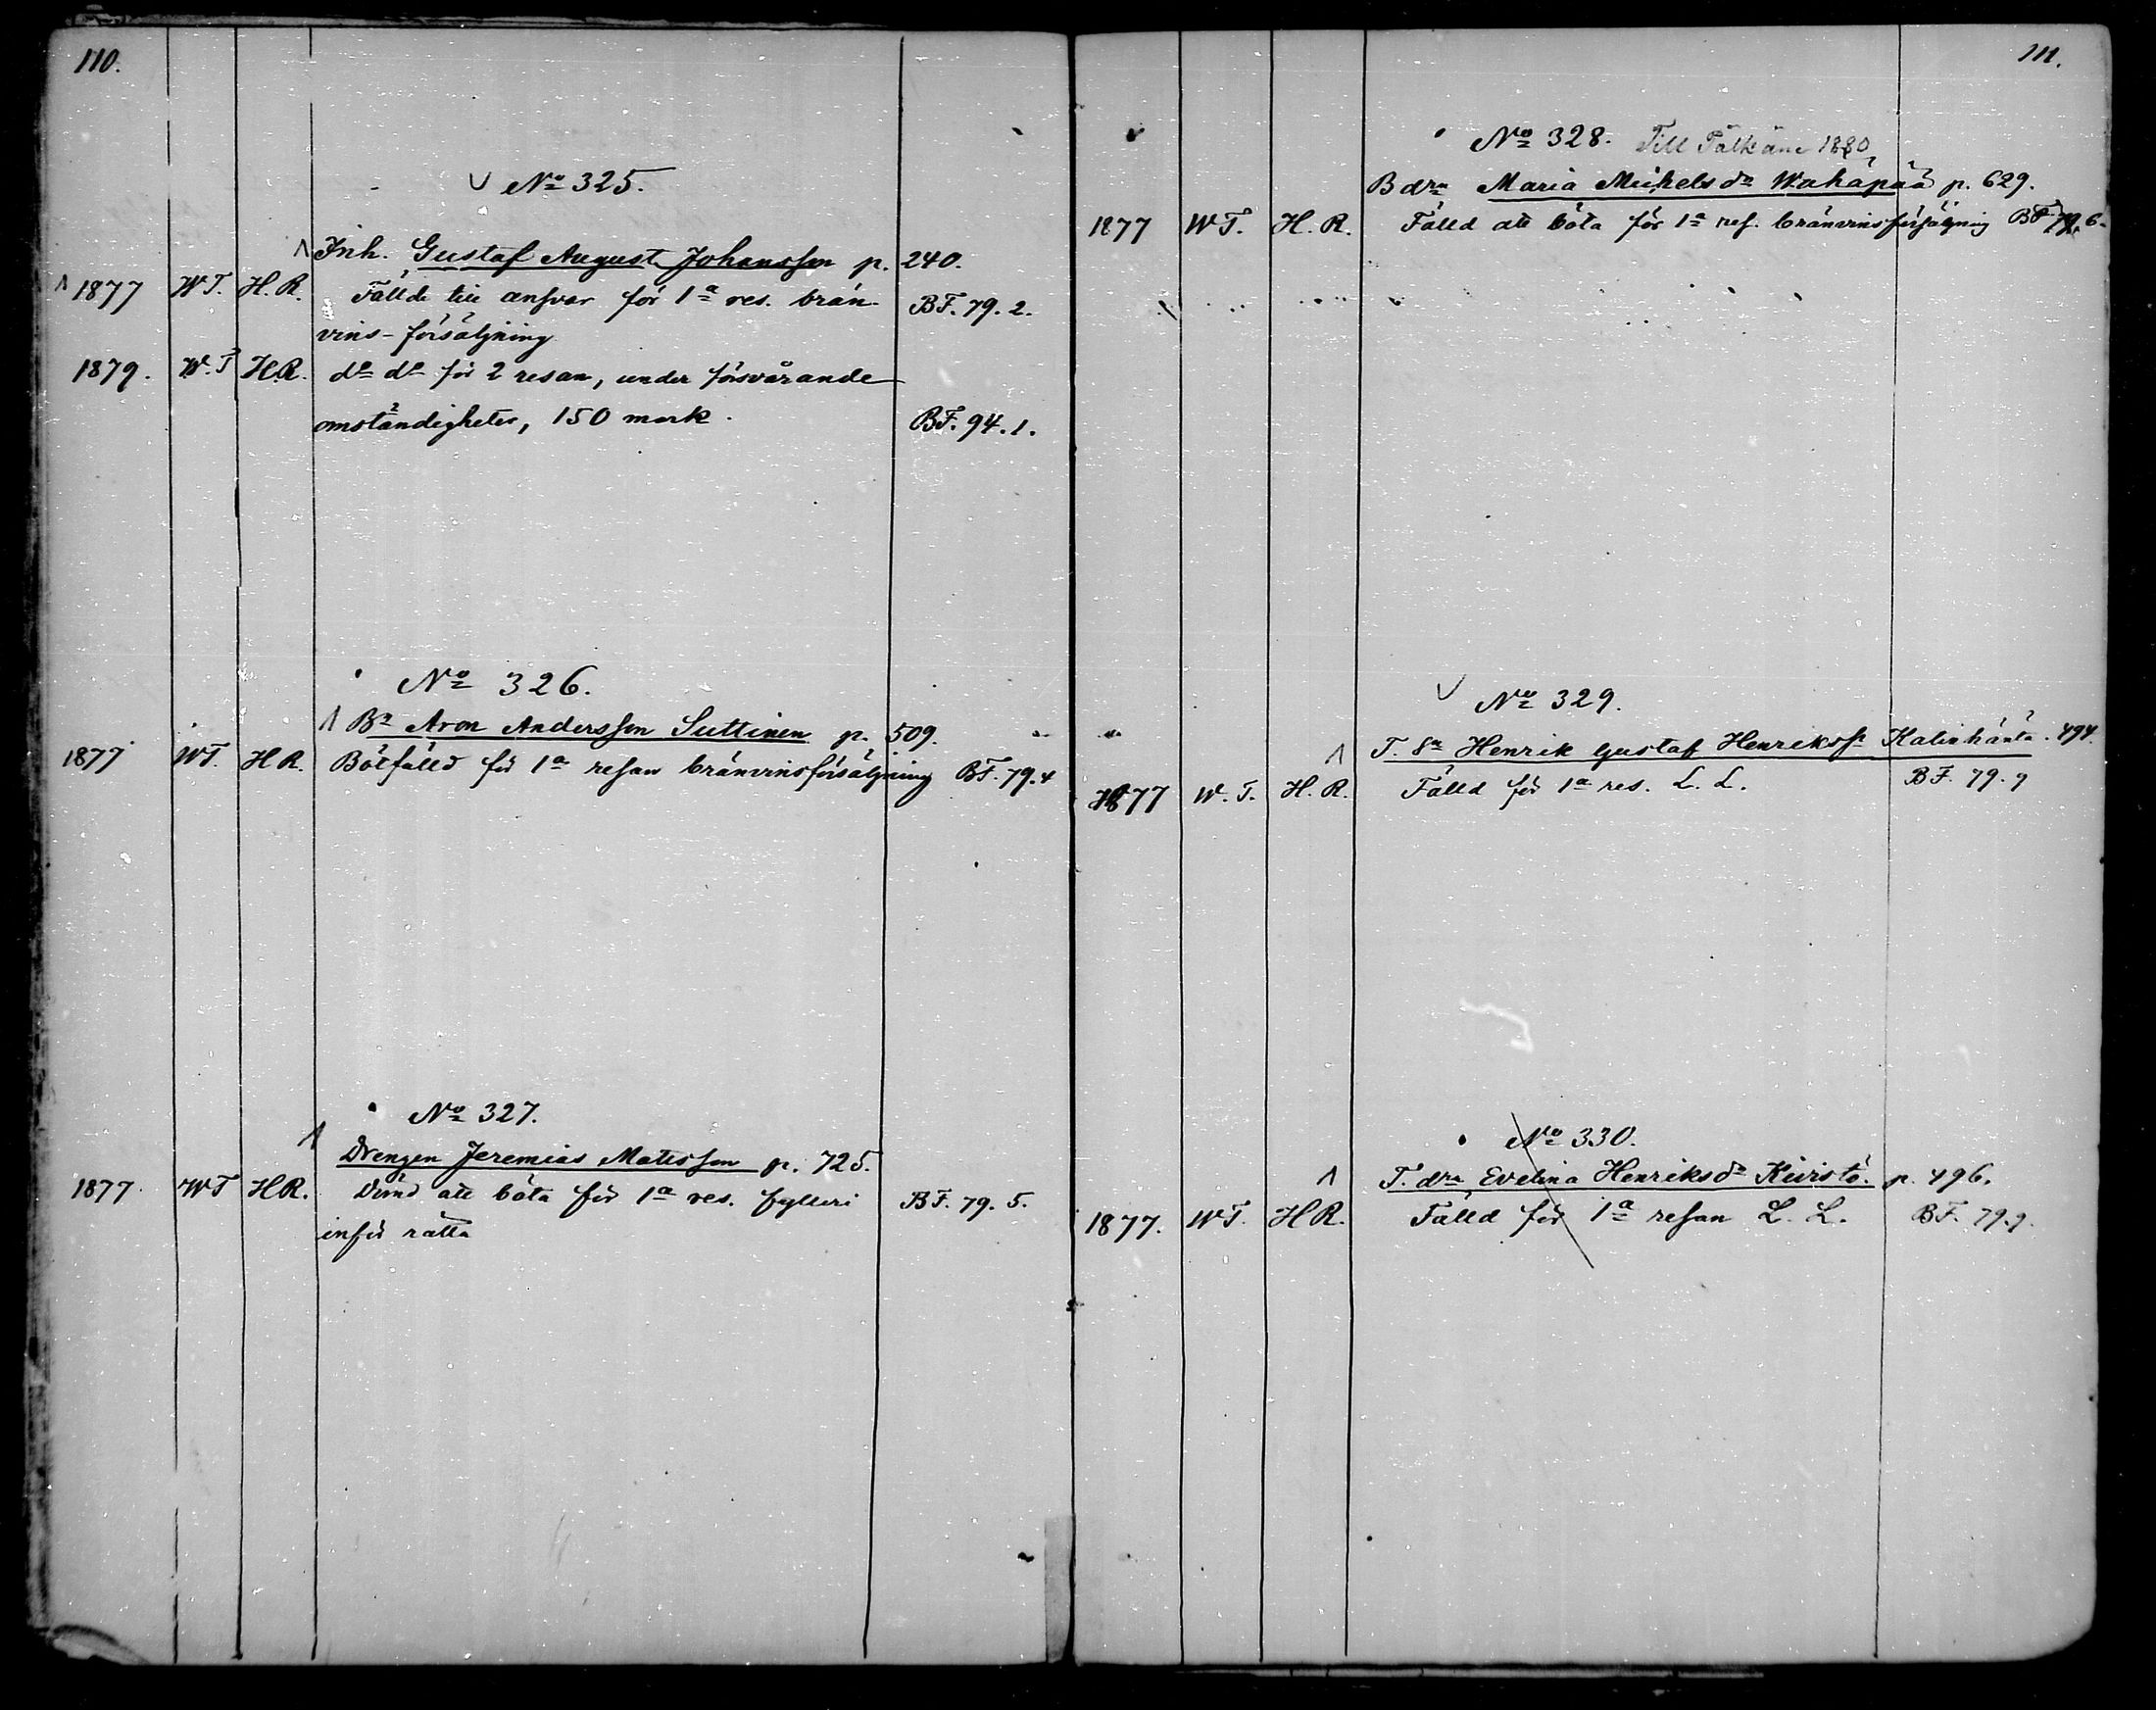 110.
№ 325.
Inh. Gustaf August Johansson p. 240.
1877 W T. H. R. Fälld till ansvar för 1a res. brän-
vins-försäljning BF. 79. 2.
1879. W. T H.R. do do för 2 resan, under försvårande
omständigheter, 150 mark. BF. 94. 1.
№ 326.
Bn Aron Andersson Suttinen p. 509.
1877 WT. H R. Bötfälld för 1a resan bränvinsförsäljning BF. 79. 4
№ 327.
Drengen Jeremias Matsson p. 725.
1877 WT H R. Dömd att böta för 1a res. fylleri BF. 79. 5.
inför rätta
111.
№ 328. Till Pälkäne 1880
B dra Maria Michels dr Wahapää p. 629.
1877 W T. H. R. Fälld att böta för 1a res. bränvinsförsäljning BF. 79. 6.
№ 329.
T. Sn Henrik Gustaf Henrikss. Kalinhänta. 494.
1877 W. T. H. R. Fälld för 1a res. L. L. BF. 79. 9
№ 330.
T. dra Evelina Henriksdr Kivistö. p. 496.
1877. WT. H R. Fälld för 1a resan L. L. BF. 79. 9.